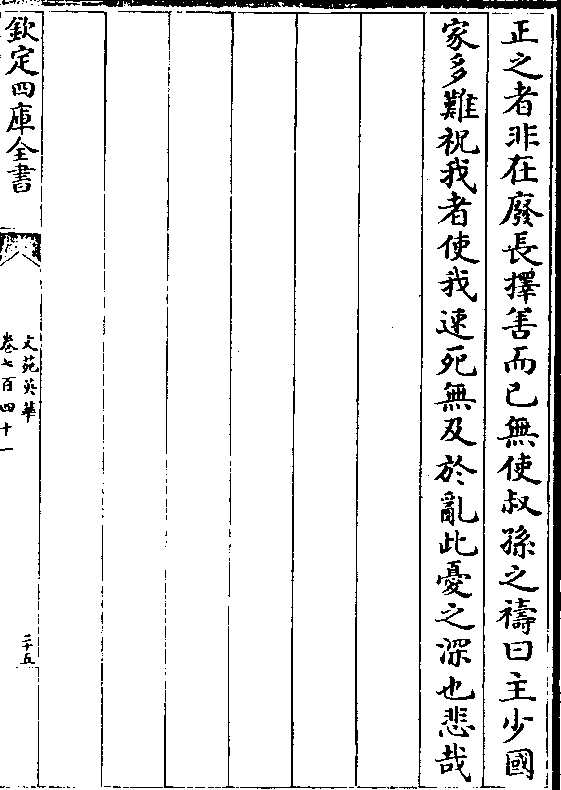 正之者非在廢長擇善而已無使叔孫之禱曰主少國
家多難祝我者使我速死無及於亂此憂之深也悲哉
欽定四庫全書
文苑英華
卷七百四十一
二十五